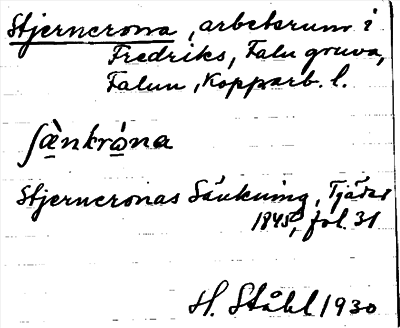 Stjerncrona, arbetsrum i
Fredriks, Falu gruva,
Falun, Kopparb. l.
ʃæ̀nkró̱na
Stjerncronas Sänkning, Tjäder
1845, fol. 31
H. Ståhl 1930